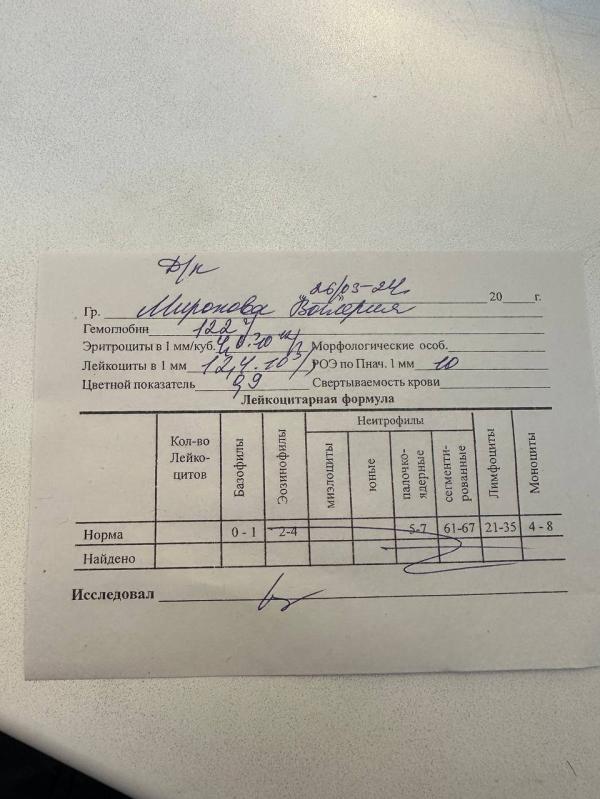 Д/п
"26/03-24г. 20 г.
Гр. Миронова Валерия
Гемоглобин 122
Эритроциты в 1 мм/куб. 4,0·10¹² Морфологические особ.
Лейкоциты в 1 мм 12,4·10 РОЭ по Пнач. 1 мм 10
Цветной показатель 0,9 Свертываемость крови
Лейкоцитарная формула
Кол-во Лейко-цитов Базофилы Эозинофилы Неитрофилы миэлоциты юные палочко-ядерные сегменти-рованные Лимфоциты Моноциты
Норма 0 - 1 2-4 5-7 61-67 21-35 4 - 8
Найдено
Исследовал